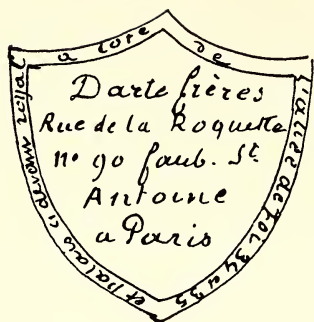 Darte frères
Rue de la Roquette
nº 90 faub. St.
Antoine
a Paris
et Palais ci devant royal
a cote de
34 a 35